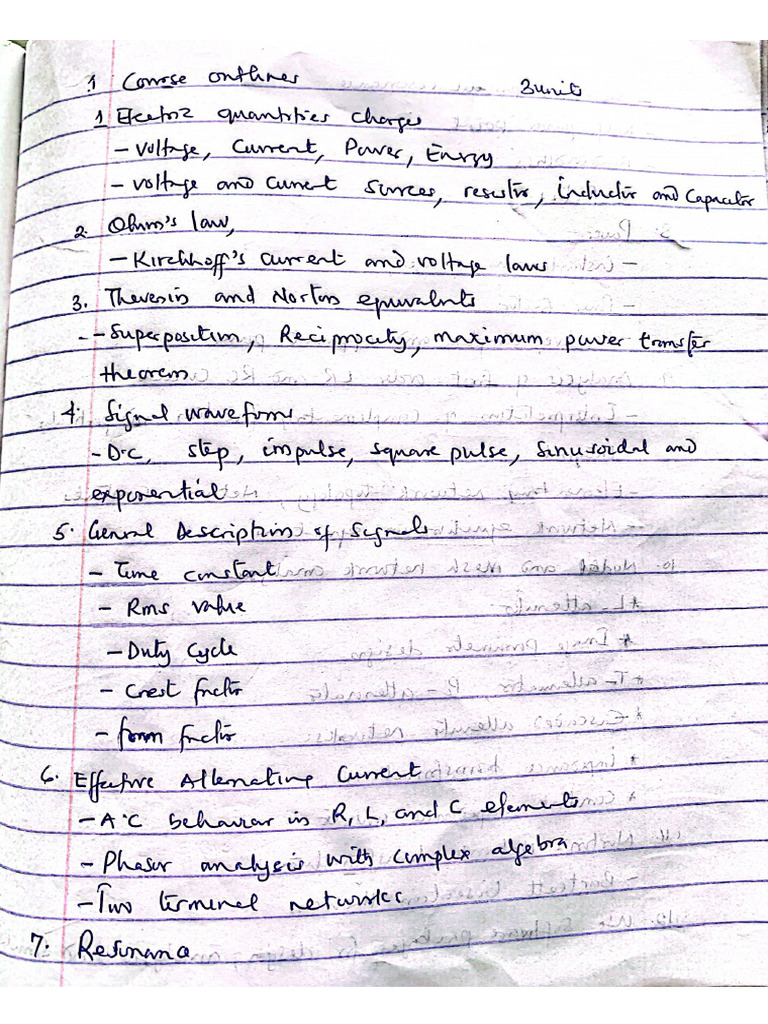 .1 Course outlines 3units
1 Electric quantities charges
- Voltage, Current, Power, Energy
- voltage and current sources, resistor, inductor and Capacitor
2. Ohm's law,
- Kirchhoff's current and voltage laws
3. Thevenin and Norton equivalents
-- Superposition, Reciprocity, maximum power transfer
theorem
4. Signal waveforms
- D.C, step, impulse, square pulse, Sinusoidal and
exponential
5. General Description of signals
- Time constant
- Rms value
- Duty Cycle
- Crest factor
- form factor
6. Effective Alternating Current
- A.C behaviour in R, L, and C elements
- Phasor analysis with complex algebra
- Two terminal networks
7. Resonance